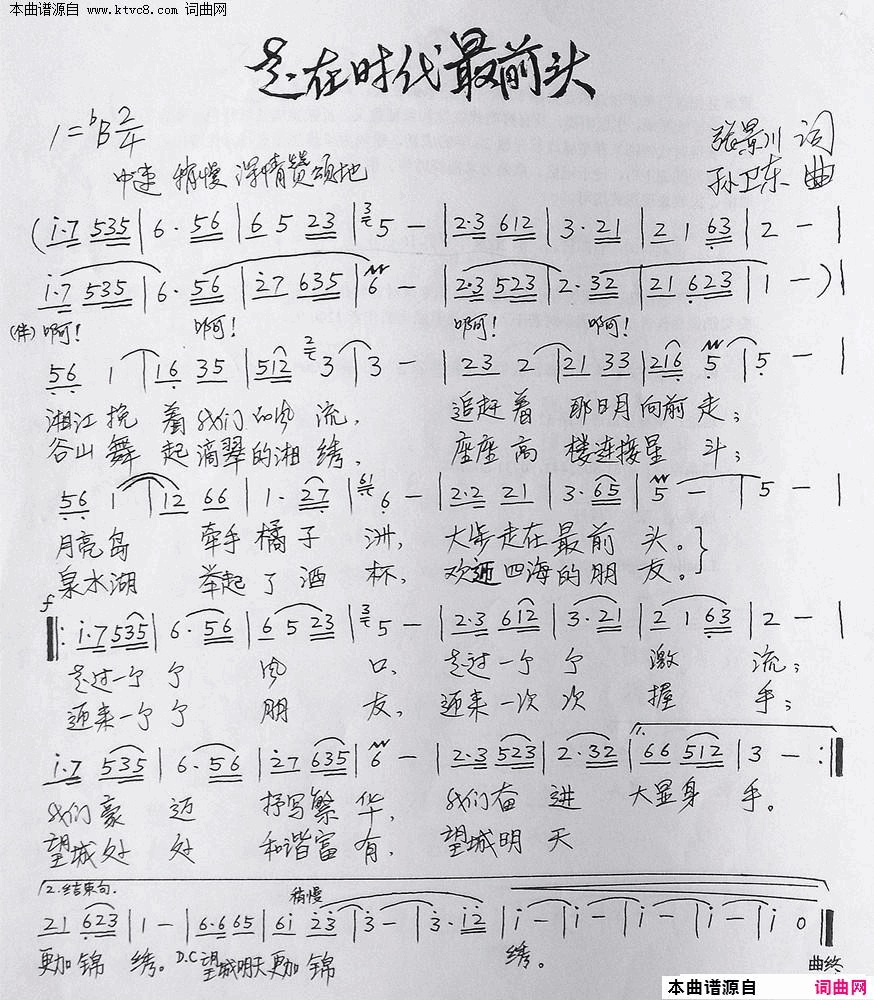 本曲谱源自
www.ktvc8.com 词曲网
走在时代最前头
1=ᵇB 2/4
张景川 词
中速 稍慢 深情赞颂地
孙卫东 曲
(i·7 535|6·56|6 5 23|3 5 —|2·3 612|3·21|2 1 63|2 —|
i·7 535|6·56|27 635|6 —|2·3 523|2·32|21 623|1 —)|
(伴)啊! 啊! 啊! 啊!
56 1|16 35|512 2 3|3 —|23 2|21 33|216 5|5 —|
湘江挽着我们的风流, 追赶着那日月向前走;
谷山舞起滴翠的湘绣, 座座高楼连接星斗;
56 1|12 66|1·27|61 6 —|2·2 21|3·65|5 —|5 —|
月亮岛 牵手橘子洲, 大步走在最前头。}
泉水湖 举起了酒杯, 欢迎四海的朋友。
f
‖: i·7 535|6·56|6 5 23|3 5 —|2·3 612|3·21|2 1 63|2 —|
走过一个个风口, 走过一个个激流;
迎来一个个朋友, 迎来一次次握手;
1.
i·7 535|6·56|27 635|6 —|2·3 523|2·32|66 512|3 — :‖
我们豪迈抒写繁华, 我们奋进大显身手。
望城处处和谐富有, 望城明天
2.结束句. 稍慢
21 623|1 —|6·6 65|6i 23|3 —|3·i2|i —|i —|i —|i —|i 0‖
更加锦绣。D.C望城明天更加锦 绣。 曲终
本曲谱源自 词曲网